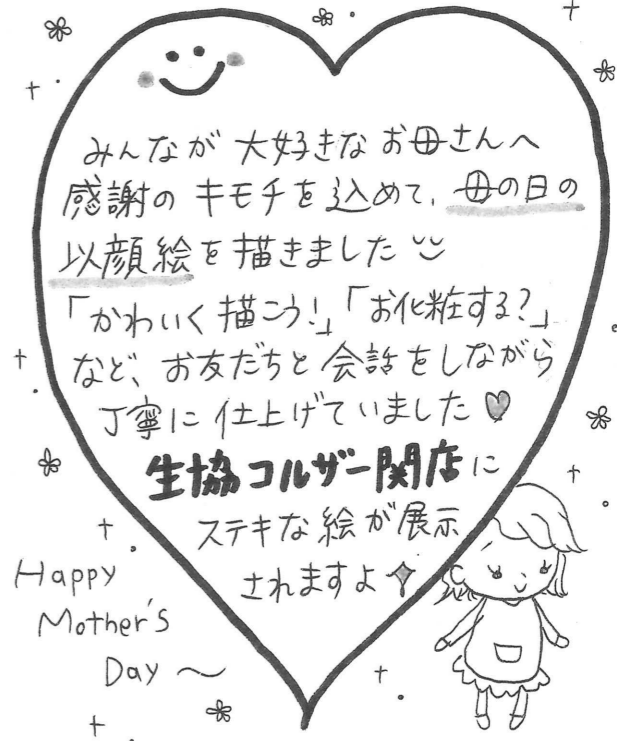 みんなが 大好きな お母さんへ
感謝の キモチを 込めて、母の日の
以顔絵を描きました
「かわいく描こう!」「お化粧する?」
など、お友だちと 会話をしながら
丁寧に 仕上げていました♥
生協コルザー関店に
ステキな絵が展示
されますよ
Happy
Mother's
Day ～